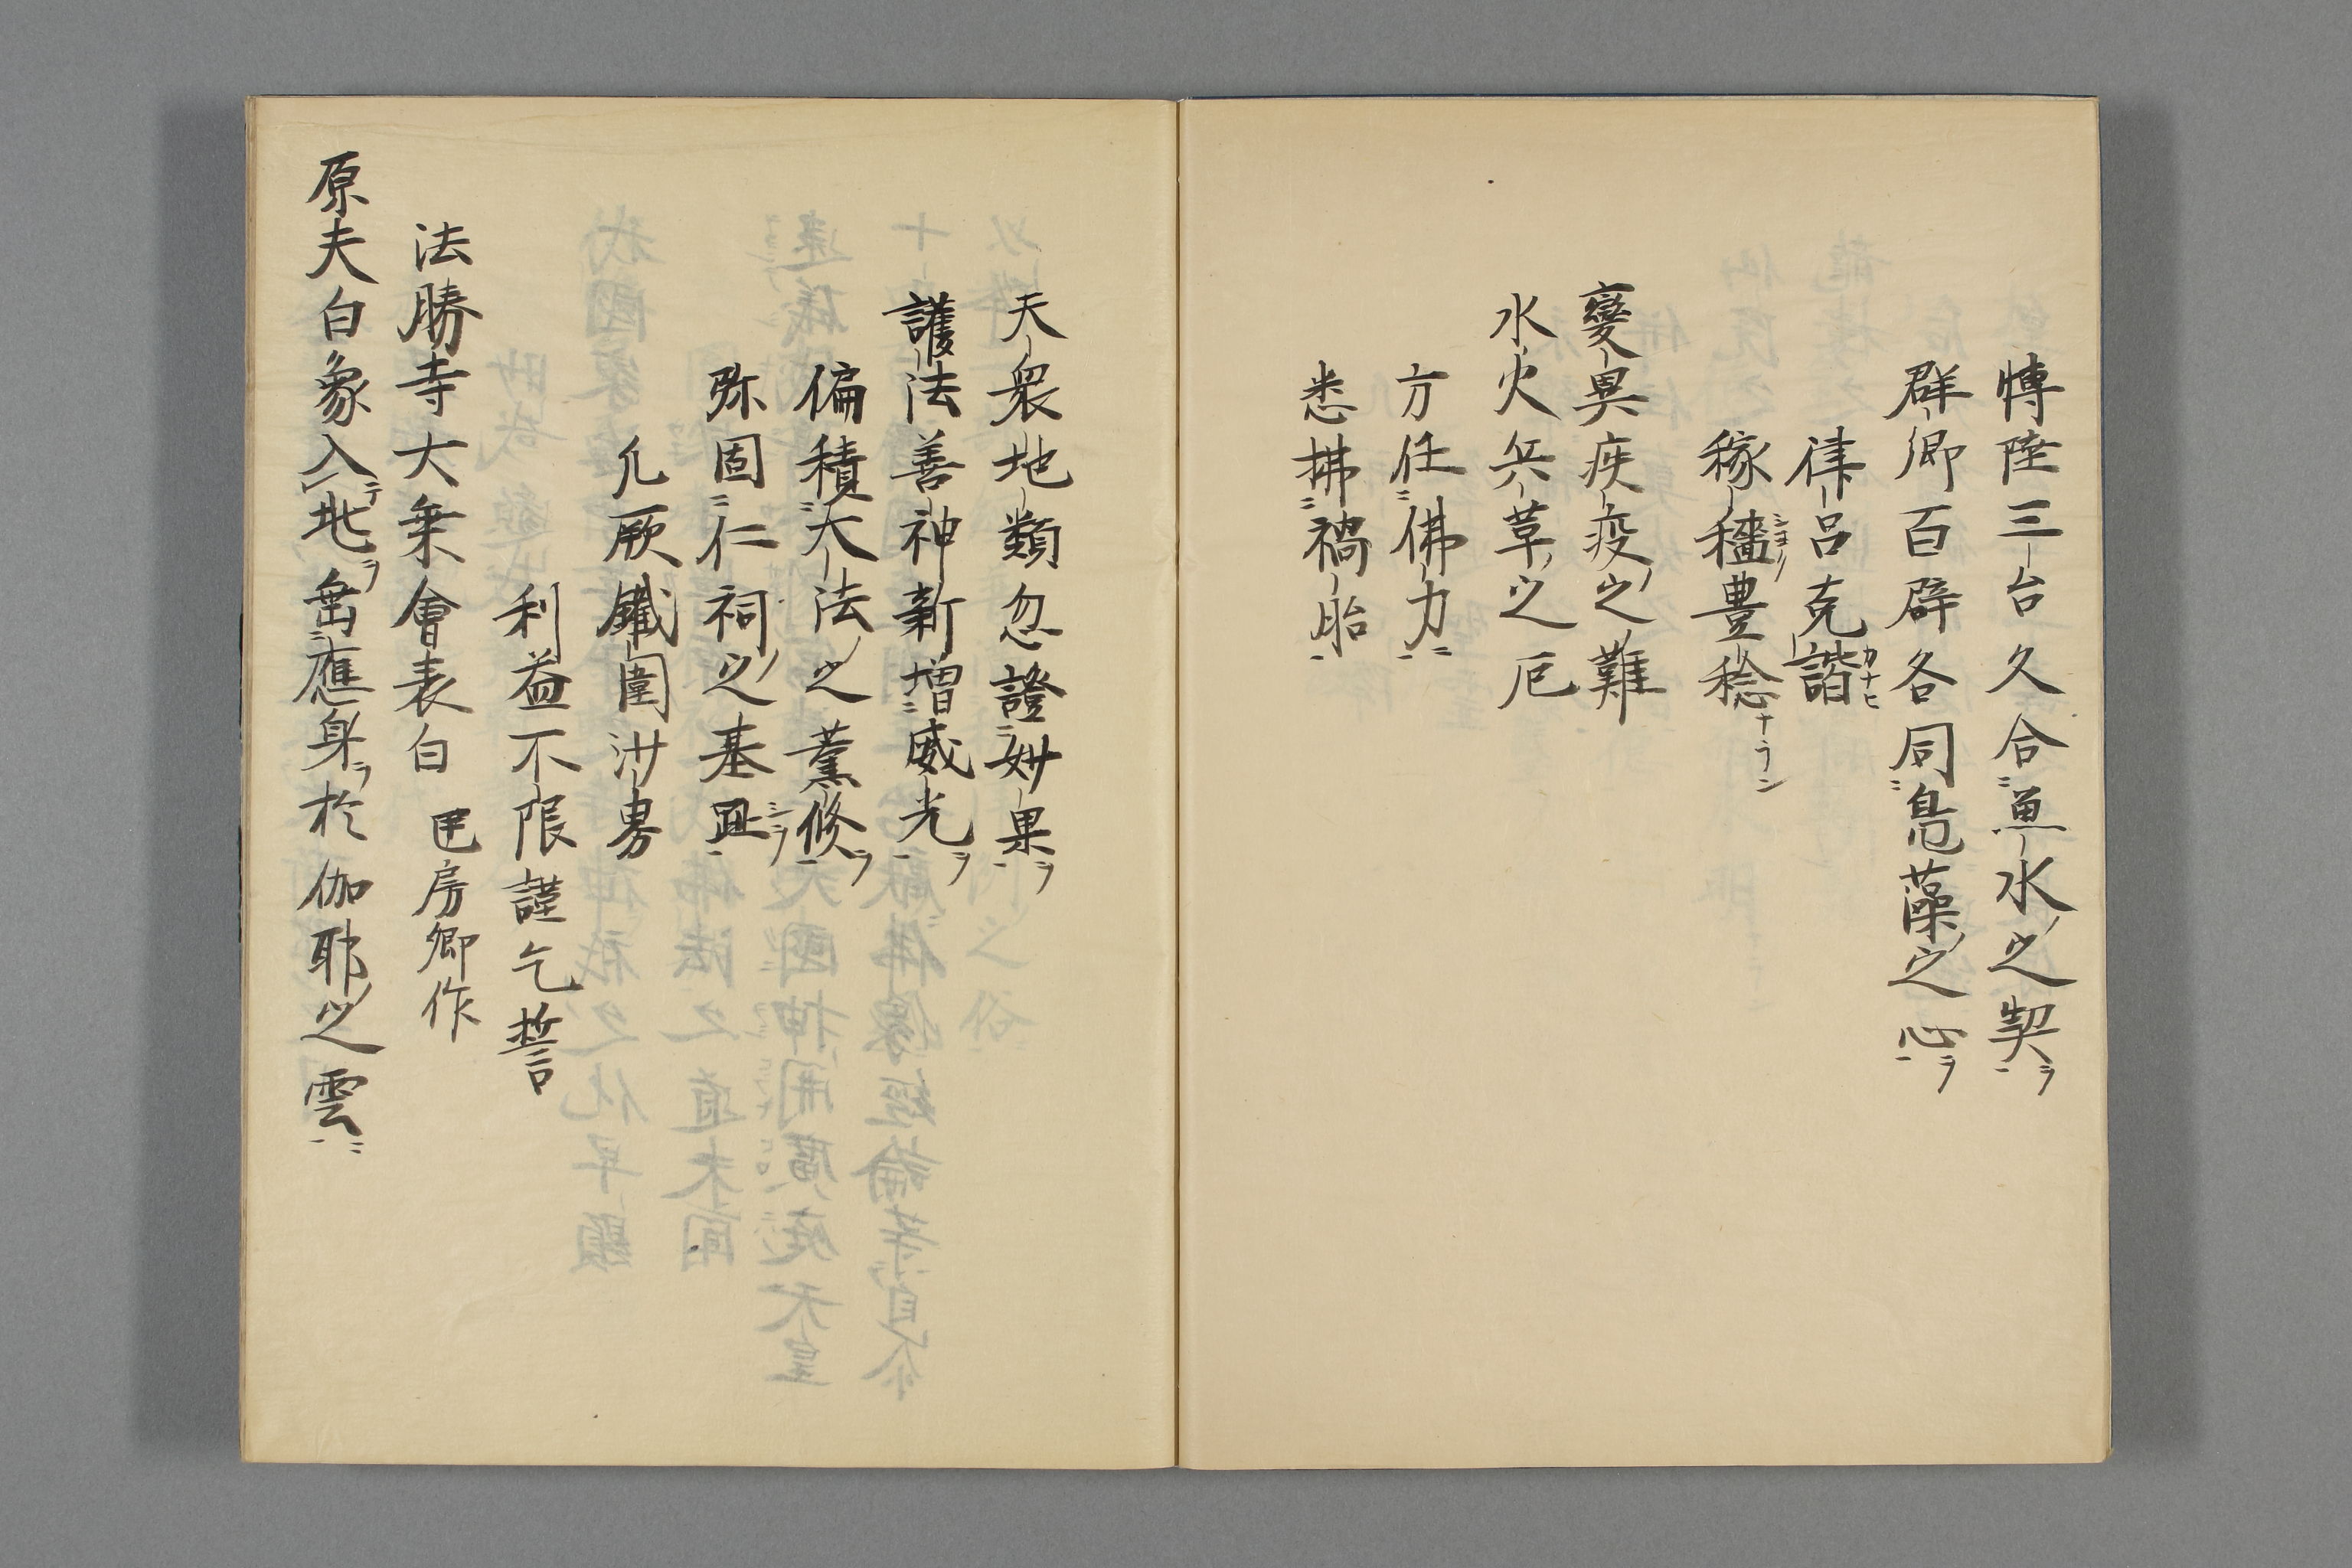 博陸三台久合魚水之契
群卿百辟各同鳧藻之心
律呂克諧
稼穡豊稔
變異疾疫之難
水火兵革之厄
方任佛力
悉拂禍胎
天衆地類忽證妙果
護法善神新増威光
偏積大法之薫修
弥固仁祠之基趾
凡厥鐵圍沙界
利益不限謹乞誓
法勝寺大乗會表白 匡房卿作
原夫白象入地垂應身於伽耶之雲